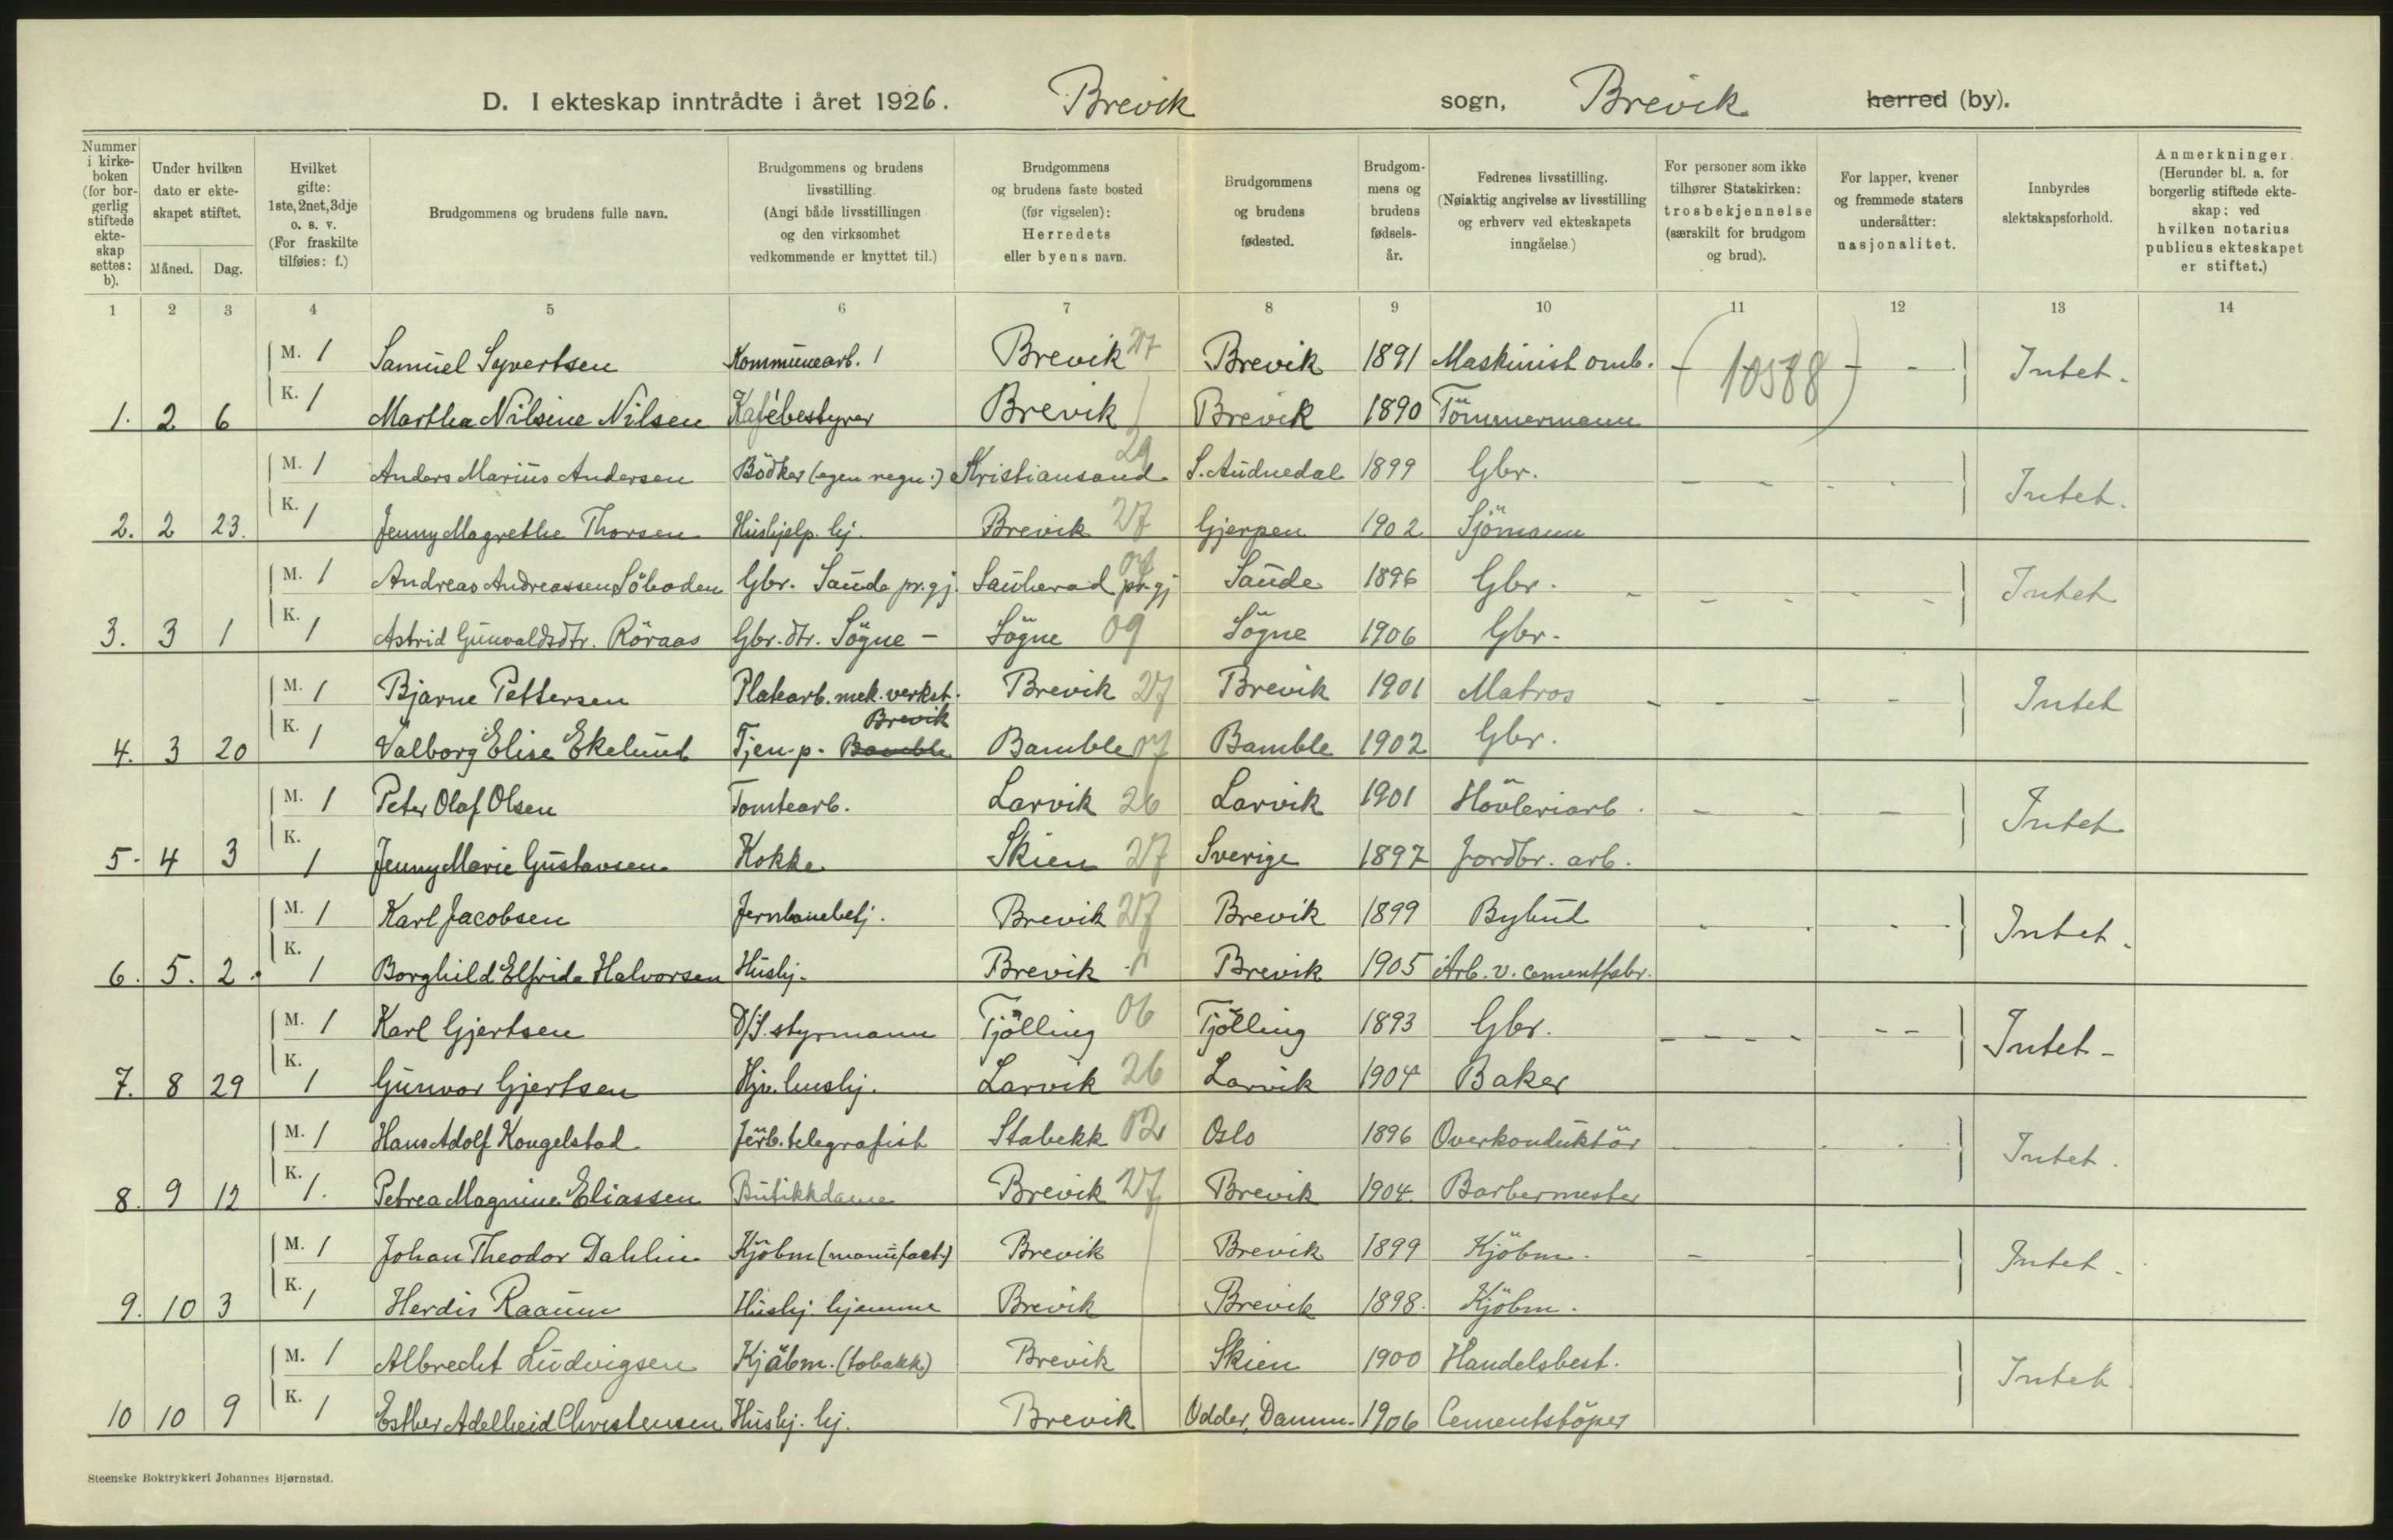 D. I ekteskap inntrådte i året 1926. Brevik sogn, Brevik herred (by).
Nummer i kirkeboken (for borgerlig stiftede ekteskap settes: b).
Under hvilken dato er ekteskapet stiftet.
Måned. Dag.
Hvilket gifte: 1ste, 2net, 3dje o. s. v. (For fraskilte tilføies: f.)
Brudgommens og brudens fulle navn.
Brudgommens og brudens livsstilling. (Angi både livsstillingen og den virksomhet vedkommende er knyttet til.)
Brudgommens og brudens faste bosted (før vigselen): Herredets eller byens navn.
Brudgommens og brudens fødested.
Brudgommens og brudens fødselsår.
Fedrenes livsstilling. (Nøiaktig angivelse av livsstilling og erhverv ved ekteskapets inngåelse.)
For personer som ikke tilhører Statskirken: trosbekjennelse (særskilt for brudgom og brud).
For lapper, kvener og fremmede staters undersåtter: nasjonalitet.
Innbyrdes slektskapsforhold.
Anmerkninger. (Herunder bl. a. for borgerlig stiftede ekteskap: ved hvilken notarius publicus ekteskapet er stiftet.)
1 2 3 4 5 6 7 8 9 10 11 12 13 14
M. 1 Samuel Syvertsen Kommunearb. 1 Brevik 27 Brevik 1891 Maskinist omb. - (10588) - - Intet.
1. 2 6 K. 1 Martha Nilsine Nilsen Kafébestyrer Brevik Brevik 1890 Tömmermann
M. 1 Anders Marius Andersen Bödker (egen regn.) Kristiansand 29 S. Audnedal 1899 Gbr. - - - - Intet.
2. 2 23. K. 1 Jenny Magrethe Thorsen Hushjelp. hj. Brevik 27 Gjerpen 1902 Sjömann
M. 1 Andreas Andreassen Söboden Gbr. Saude pr.gj. Sauherad pr.gj 07 Saude 1896 Gbr. - - - - - Intet
3. 3 1 K. 1 Astrid Gunvaldsdtr. Röraas Gbr. dtr. Sögne - Sögne 09 Sögne 1906 Gbr.
M. 1 Bjarne Pettersen Platearb. mek. verkst. Brevik 27 Brevik 1901 Matros - - - - Intet
Brevik
4. 3 20 K. 1 Valborg Elise Ekelund Tjen. p. Bamble Bamble 07 Bamble 1902 Gbr.
M. 1 Peter Olaf Olsen Tomtearb. Larvik 26 Larvik 1901 Hövleriarb. - - - Intet
5. 4 3 K. 1 Jenny Marie Gustavsen Kokke Skien 27 Sverige 1897 Jordbr. arb.
M. 1 Karl Jacobsen Jernbanebetj. Brevik 27 Brevik 1899 Bybud - - - - Intet.
6. 5. 2. K. 1 Borghild Elfrida Halvorsen Hushj. Brevik " Brevik 1905 Arb. v. cementfabr.
M. 1 Karl Gjertsen D/S. styrmann Tjölling 06 Tjölling 1893 Gbr. - - - - - - Intet -
7. 8 29 K. 1 Gunvor Gjertsen Hjv. hushj. Larvik 26 Larvik 1904 Baker
M. 1 Hans Adolf Kongelstad Jerb. telegrafist Stabekk 02 Oslo 1896 Overkonduktör - - - Intet.
8. 9 12 K. 1. Petrea Magnine Eliassen Butikkdame Brevik 27 Brevik 1904. Barbermester
M. 1 Johan Theodor Dahlin Kjöbm (manufact.) Brevik Brevik 1899 Kjöbm. - - - Intet.
9. 10 3 K. 1 Herdis Raaum Hushj. hjemme Brevik Brevik 1898. Kjöbm.
M. 1 Albrecht Ludvigsen Kjöbm. (tobakk) Brevik Skien 1900 Handelsbest. Intet.
10 10 9 K. 1 Esther Adelheid Christensen Hushj. hj. Brevik Odder, Danm. 1906 Cementstöper
Steenske Boktrykkeri Johannes Bjørnstad.